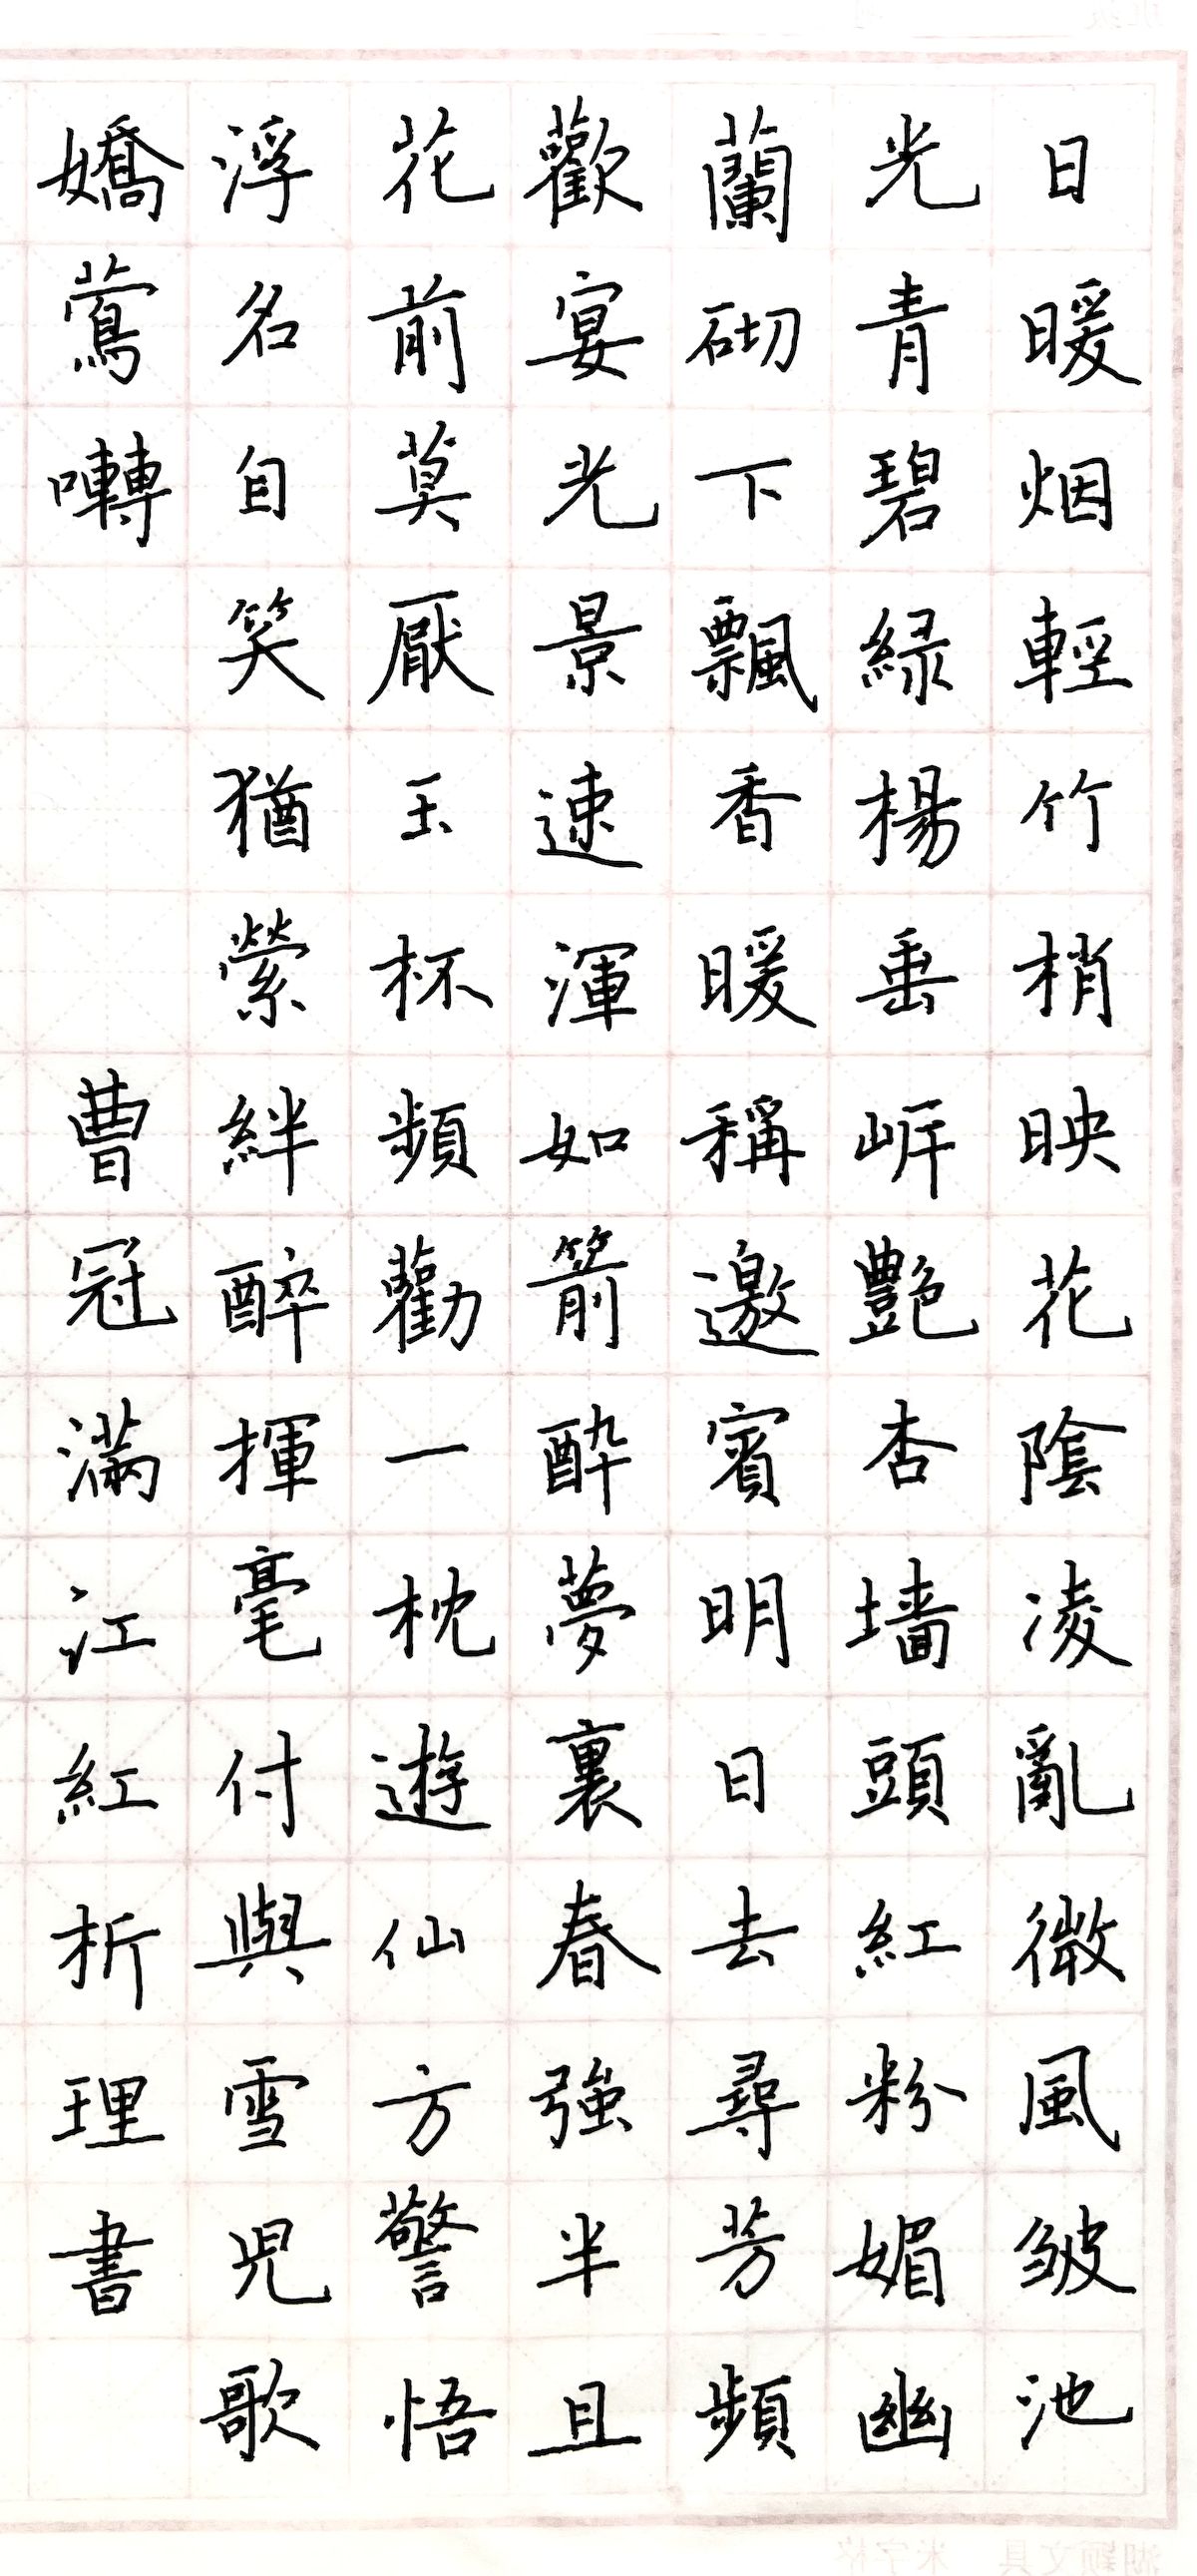 日暖烟輕竹梢映花陰凌亂微風皱池
光青碧緑楊垂岍艷杏墻頭紅粉媚幽
蘭砌下飄香暖稱邀賓明日去尋芳頻
歡宴光景速渾如箭酔夢裏春強半且
花前莫厭玉杯頻勸一枕遊仙方警悟
浮名自笑猶縈絆醉揮毫付與雪兒歌
嬌鶯囀
曹冠满江紅析理書